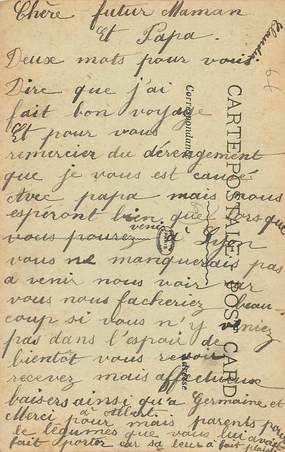 Chère futur Maman
Et Papa.
Deux mots pour vous
Dire que j'ai
fait bon voyage
Et pour vous
remercier du dérengement
que je vous est causé
Avec papa mais nous
esperont bien que lorsque
vous pourez venir à Lyon
vous ne manquerais pas
a venir nous voir car
vous nous facheriez beau-
coup si vous n'y veniez
pas dans l'espoir de
bientôt vous revoir
recevez mais affectueux
baisers ainsi qu'a Germaine et
Merci pour mais parents pour
le légumes que vous lui avait
fait porter car sa leur à fait plaisir
CARTE POSTALE POST CARD
Correspondance
Adresse